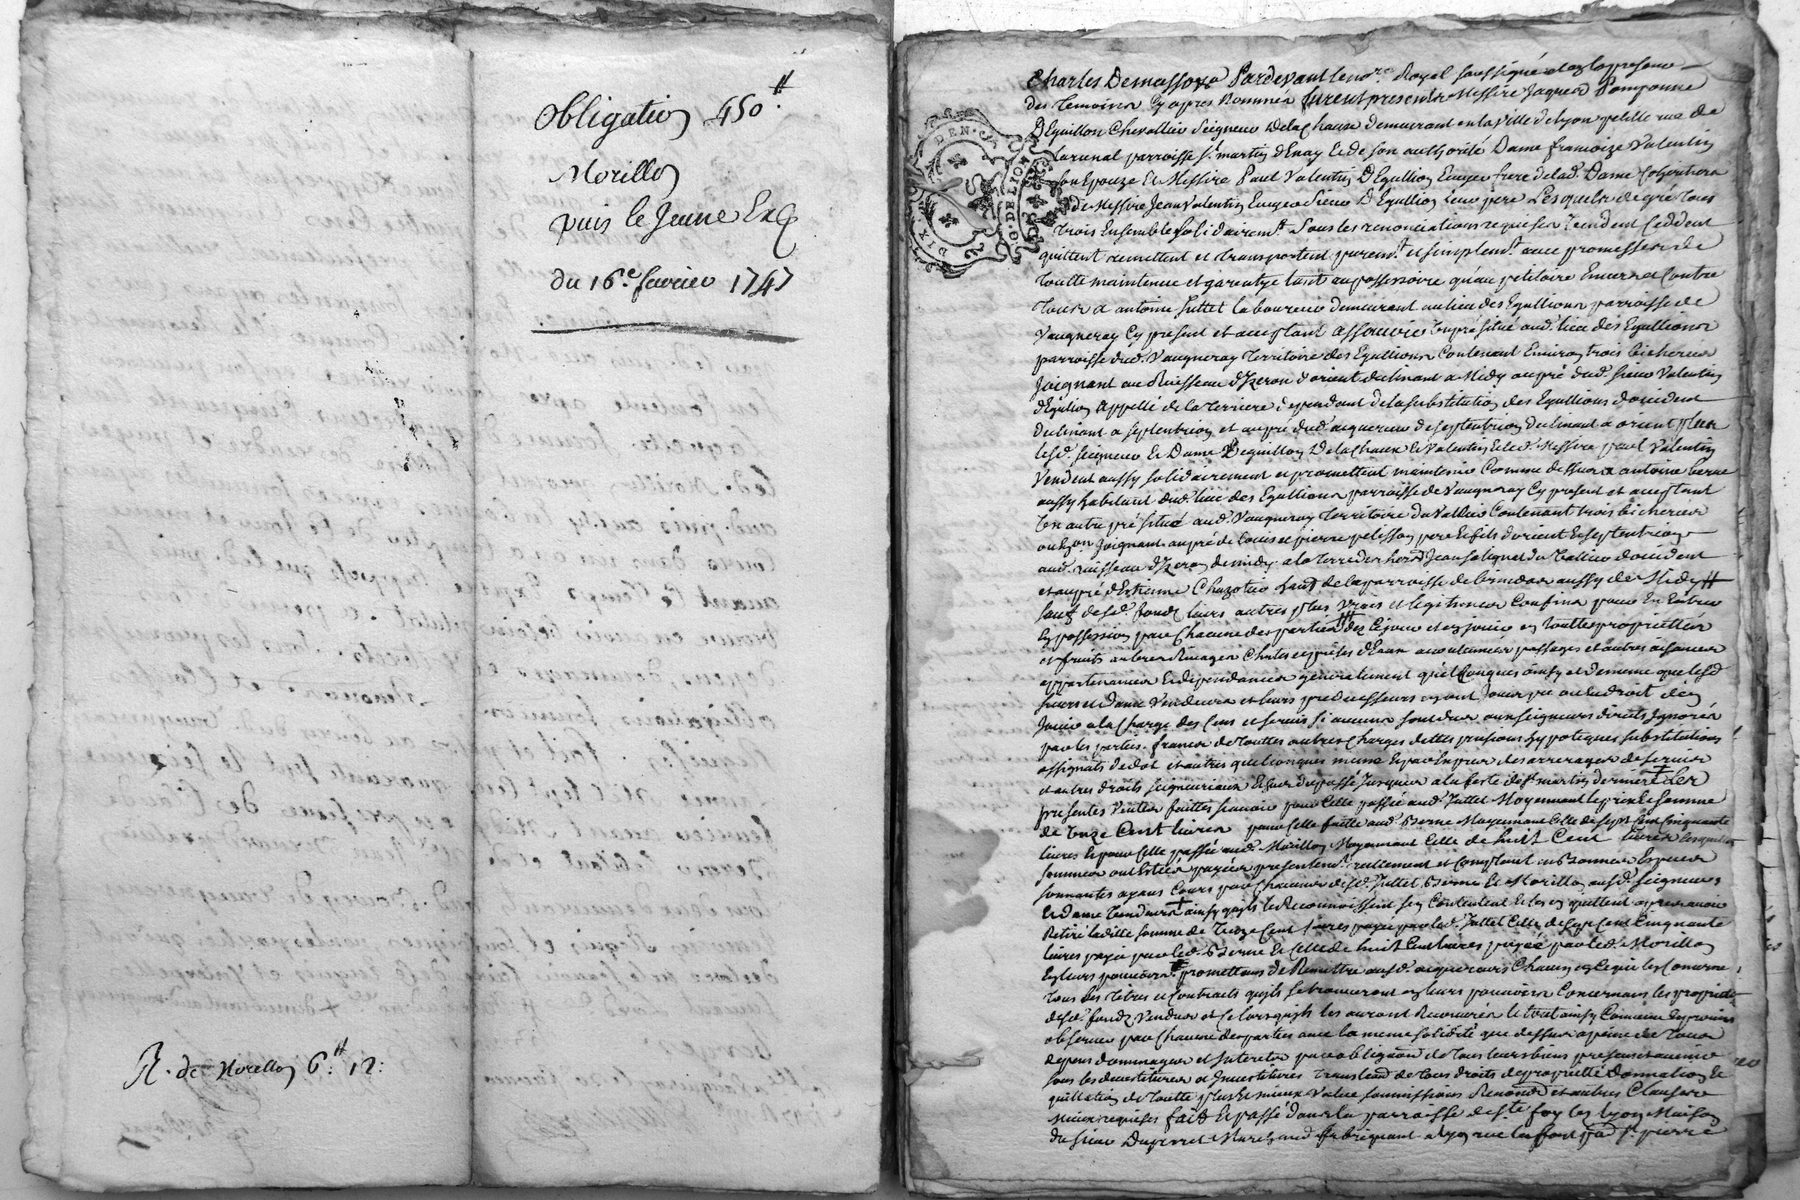 Obligation 450ᵗᵗ
Morillon
puis le Jeune Exp
du 16e. fevrier 1747
R. de Morillon 6ᵗᵗ. 12:
DIX DEN.
G. DE LION
Charles Demassoys Pardevant le no.re Royal soussigné et en la presence
des Temoins Cy apres Nommés furent presents Messire Jaques Pomponne
D'Eguillon Chevallier Seigneur Delachaux demeurant en la Ville de Lyon petitte rue de
Larsenal parroisse St. martin d'Enay & de son authorité Dame francoize Valentin
son Epouze Et Messire Paul Valentin D'Egullion Ecuyer frere de lad. Dame Coheritiers
de Messire Jean Valentin Ecuyer Sieur D'Egullion leur pere Lesquels de gré tous
Trois Ensemble solidairemt. sous les renonciations requises Vendent Ceddent
quittent remettent et transportent puremt. et simplemt. avec promesses de
toutte maintenue et garentye tant au possessoire qu'au petitoire Envers et Contre
Tous a antoine Juttet laboureur demeurant au lieu des Egullions parroisse de
Vaugneray Cy present et acceptant assavoir un pré situé aud. lieu des Egullions
parroisse dud. Vaugneray Territoire des Egullions Contenant Environ trois bicherées
Joignant au Ruisseau d'Izeron d'orient declinant a Midy au pré dud. sieur Valentin
d'Egulion appellé de la Terriere dependant de la substitution des Egullions d'occident
declinant a septentrion et au pré dud. acquereur de septentrion declinant a orient plus
lesd. seigneur & Dame Deguillon De la Chaux & Valentin & led. Messire paul Valentin
Vendent aussy solidairement et promettent maintenir Comme dessus a antoine Berne
aussy habitant dud. lieu des Egullions parroisse de Vaugneray Cy present et acceptant
un autre pré situé aud. Vaugneray Territoire du Vallier Contenant trois bicherées
ou Environ Joignant au pré de louis et pierre pelisson pere & fils d'orient & septentrion
aud. ruisseau d'Izeron de midy a la Terre des Jean salignat du Vallier d'occident
et au pré d'Estienne Chazotier de la parroisse de brindas aussy de Midy
sauf desd. fonds leurs autres plus vrays et legitimes Confins pour En Entrer
En possession par Chacune des parties dez Ce jour et en jouir en toutte proprietté
et fruits arbres Rivages Chutes et prises d'Eaux accoutumées passages et autres aisances
appartenances & dependances generalement quelConques ainsy et de meme que lesd.
sieurs et Dame Vendeurs et leurs predecesseurs en ont Jouy pu ou eu droit d'en
Jouir a la Charge des Cens et servis si aucuns sont dus aux seigneurs directs Ignorés
par les parties. francs de touttes autres Charges dettes pensions hypoteques substitutions
assignats de dot et autres quelconques meme Expressement des arrerages de servis
et autres droits seigneuriaux Echus du passé Jusques a la feste de St. martin derniere Les
presentes Ventes faittes scavoir pour Celle passée aud. Juttet Moyennant le prix & somme
de treize Cent livres pour Celle faitte aud. Berne Moyennant Celle de sept Cent Cinquante
livres & pour Celle passée aud. Morillon Moyennant Celle de huit Cent livres lesquelles
sommes ont Estées payées presentemt. reellement et Comptant en Bonnes Especes
sonnantes ayant Cours par Chacuns desd. Juttet Berne & Morillon ausd. seigneurs
& dame Vendeurs ainsy quils le Reconnoissent s'en Contentent & les en quittent apres avoir
Retiré laditte somme de treize Cent livres payée par led. Juttet Celle de sept Cent Cinquante
livres payée par led. Berne & Celle de huit Cent livres payée par led. Morillon
En leurs pouvoirs promettant de Remettre ausd. acquereurs Chacun en Ce qui les Concerne
tous les Titres et Contracts quils se trouveront en leurs pouvoirs Concernant les proprietés
desd. fonds Vendus et lorsquils les auront Recouvrés le tout ainsy Convenu Et promis
observer par Chacune des parties avec la meme solidité que dessus a peine de tous
depens dommages et Interets par obligaon de tous leurs biens presents et avenir
sous les devestitures et Investitures translaon de tous droits de proprieté donnation &
quittation de toutte plus & mieux Value soumissions Renonaon et autres Clauses
Mieux requises fait & passé dans la parroisse de ste. foy les Lyon Maison
du sieur Duperret Marchand fabriquant a Lyon St. pierre